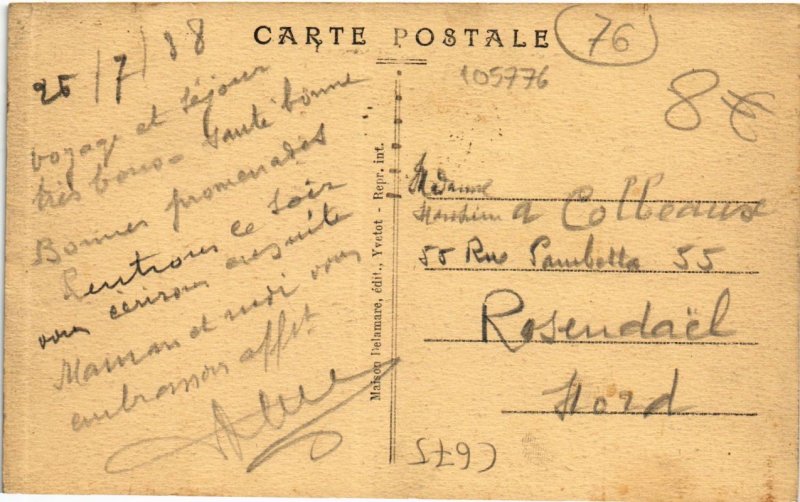 CARTE POSTALE
76
105776
8€
25/7/38
voyage et séjour
très bons - Santé bonne
Bonnes promenades
Rentrons ce soir
vous écrirons ensuite
Maman et moi vous
embrassons affst
Maison Delamare, édit., Yvetot - Repr. int.
Madame
a Colbeaux
55 Rue Gambetta 55
Rosendaël
Nord
C675